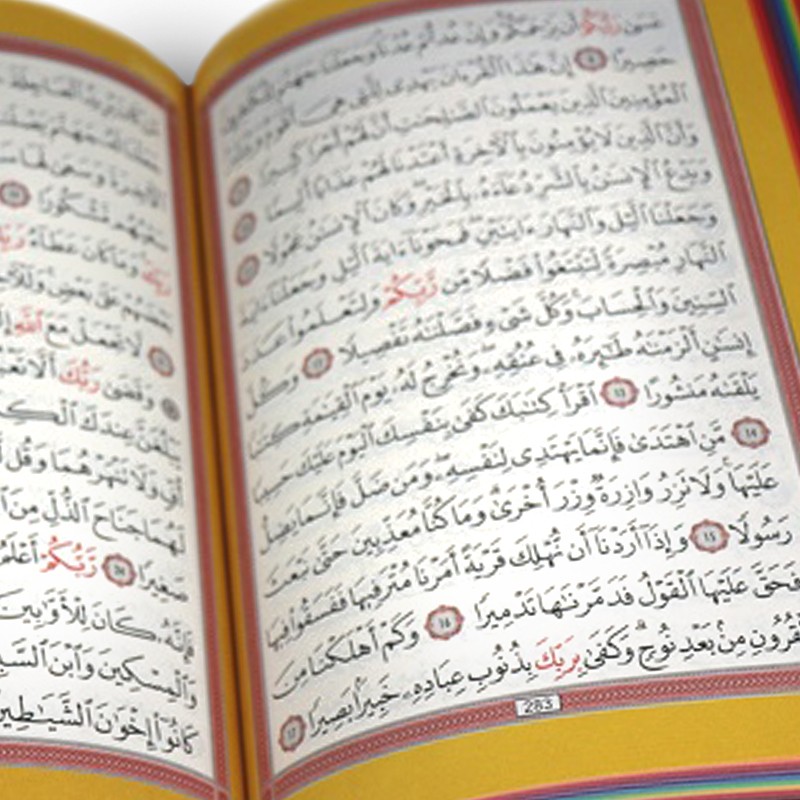 عَسَىٰ رَبُّكُمْ أَن يَرْحَمَكُمْ وَإِنْ عُدتُّمْ عُدْنَا وَجَعَلْنَا جَهَنَّمَ لِلْكَٰفِرِينَ
حَصِيرًا ٨ إِنَّ هَٰذَا ٱلْقُرْءَانَ يَهْدِى لِلَّتِى هِىَ أَقْوَمُ وَيُبَشِّرُ
ٱلْمُؤْمِنِينَ ٱلَّذِينَ يَعْمَلُونَ ٱلصَّٰلِحَٰتِ أَنَّ لَهُمْ أَجْرًا كَبِيرًا ٩
وَأَنَّ ٱلَّذِينَ لَا يُؤْمِنُونَ بِٱلْءَاخِرَةِ أَعْتَدْنَا لَهُمْ عَذَابًا أَلِيمًا ١٠
وَيَدْعُ ٱلْإِنسَٰنُ بِٱلشَّرِّ دُعَآءَهُۥ بِٱلْخَيْرِ وَكَانَ ٱلْإِنسَٰنُ عَجُولًا ١١
وَجَعَلْنَا ٱلَّيْلَ وَٱلنَّهَارَ ءَايَتَيْنِ فَمَحَوْنَآ ءَايَةَ ٱلَّيْلِ وَجَعَلْنَآ ءَايَةَ
ٱلنَّهَارِ مُبْصِرَةً لِّتَبْتَغُوا۟ فَضْلًا مِّن رَّبِّكُمْ وَلِتَعْلَمُوا۟ عَدَدَ
ٱلسِّنِينَ وَٱلْحِسَابَ وَكُلَّ شَىْءٍ فَصَّلْنَٰهُ تَفْصِيلًا ١٢ وَكُلَّ
إِنسَٰنٍ أَلْزَمْنَٰهُ طَٰٓئِرَهُۥ فِى عُنُقِهِۦ وَنُخْرِجُ لَهُۥ يَوْمَ ٱلْقِيَٰمَةِ كِتَٰبًا
يَلْقَىٰهُ مَنشُورًا ١٣ ٱقْرَأْ كِتَٰبَكَ كَفَىٰ بِنَفْسِكَ ٱلْيَوْمَ عَلَيْكَ حَسِيبًا
١٤ مَّنِ ٱهْتَدَىٰ فَإِنَّمَا يَهْتَدِى لِنَفْسِهِۦ وَمَن ضَلَّ فَإِنَّمَا يَضِلُّ
عَلَيْهَا وَلَا تَزِرُ وَازِرَةٌ وِزْرَ أُخْرَىٰ وَمَا كُنَّا مُعَذِّبِينَ حَتَّىٰ نَبْعَثَ
رَسُولًا ١٥ وَإِذَآ أَرَدْنَآ أَن نُّهْلِكَ قَرْيَةً أَمَرْنَا مُتْرَفِيهَا فَفَسَقُوا۟ فِيهَا
فَحَقَّ عَلَيْهَا ٱلْقَوْلُ فَدَمَّرْنَٰهَا تَدْمِيرًا ١٦ وَكَمْ أَهْلَكْنَا مِنَ
ٱلْقُرُونِ مِنۢ بَعْدِ نُوحٍ وَكَفَىٰ بِرَبِّكَ بِذُنُوبِ عِبَادِهِۦ خَبِيرًۢا بَصِيرًا ١٧
283
مَّن كَانَ يُرِيدُ ٱلْعَاجِلَةَ
سَعْيُهُم مَّشْكُورًا ١٩
رَبِّكَ وَمَا كَانَ عَطَآءُ رَبِّكَ
بَعْضَهُمْ عَلَىٰ بَعْضٍ وَلَلْءَاخِرَةُ
٢١ لَّا تَجْعَلْ مَعَ ٱللَّهِ
وَقَضَىٰ رَبُّكَ أَلَّا
يَبْلُغَنَّ عِندَكَ ٱلْكِبَرَ
أُفٍّ وَلَا تَنْهَرْهُمَا وَقُل
لَهُمَا جَنَاحَ ٱلذُّلِّ مِنَ
صَغِيرًا ٢٤ رَّبُّكُمْ أَعْلَمُ
فَإِنَّهُۥ كَانَ لِلْأَوَّٰبِينَ
وَٱلْمِسْكِينَ وَٱبْنَ ٱلسَّبِيلِ
كَانُوٓا۟ إِخْوَٰنَ ٱلشَّيَٰطِينِ